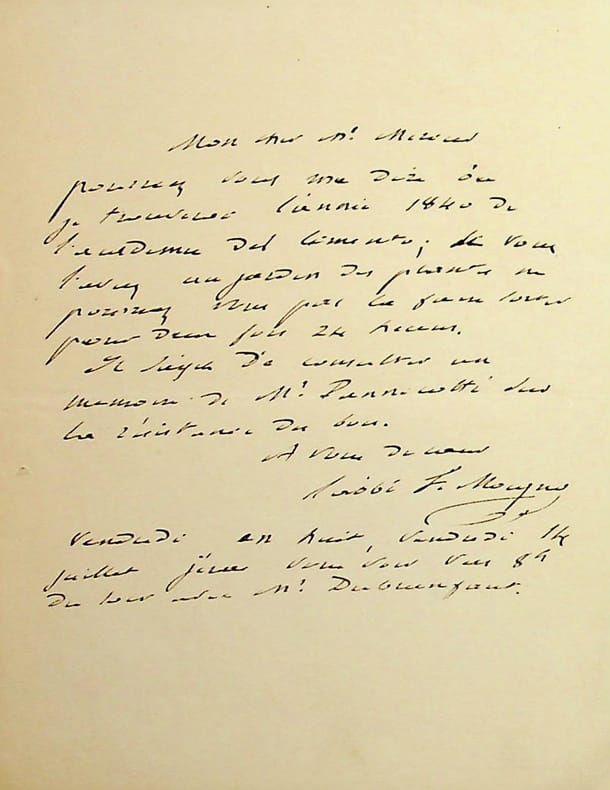 Mon cher Mr
pourriez vous me dire où
je trouverai l'année 1840 de
l'academie del Cimento; Si vous
l'avez au jardin des plantes ne
pourriez vous pas la faire sortir
pour deux fois 24 heures.
Il s'agit de consulter un
memoire de Mr. sur
la résistance du bois.
A vous de coeur
l'abbé F. Moigno
Vendredi en huit, vendredi 14
juillet j'irai vous voir vers 8h
du soir avec Mr. Dubrunfaut.